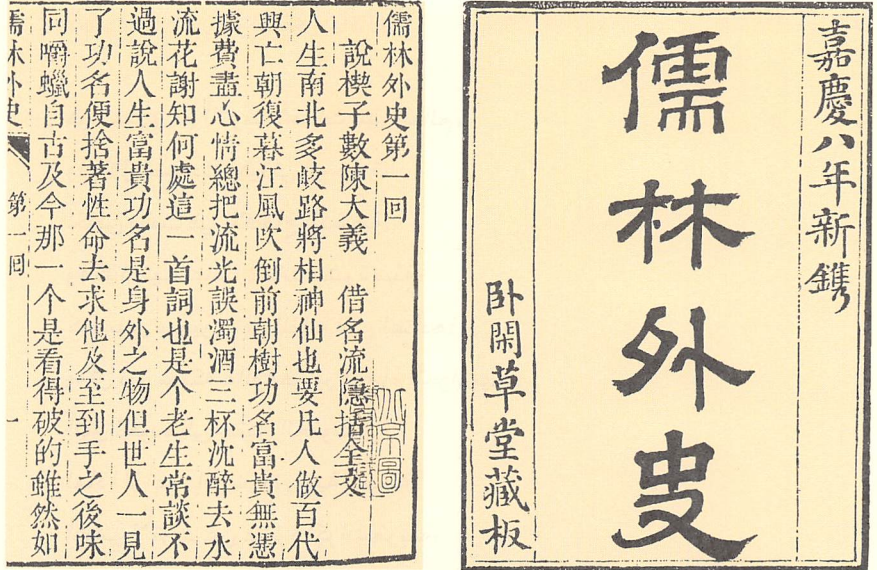 嘉慶八年新鐫
儒林外史
卧閑草堂藏板
儒林外史第一回
說楔子數陳大義　借名流隱括全文
人生南北多岐路將相神仙也要凡人做百代
興亡朝復暮江風吹倒前朝樹功名富貴無憑
據費盡心情總把流光誤濁酒三杯沈醉去水
流花謝知何處這一首詞也是个老生常談不
過說人生富貴功名是身外之物但世人一見
了功名便捨著性命去求他及至到手之後味
同嚼蠟自古及今那一个是看得破的雖然如
儒林外史　第一回　一